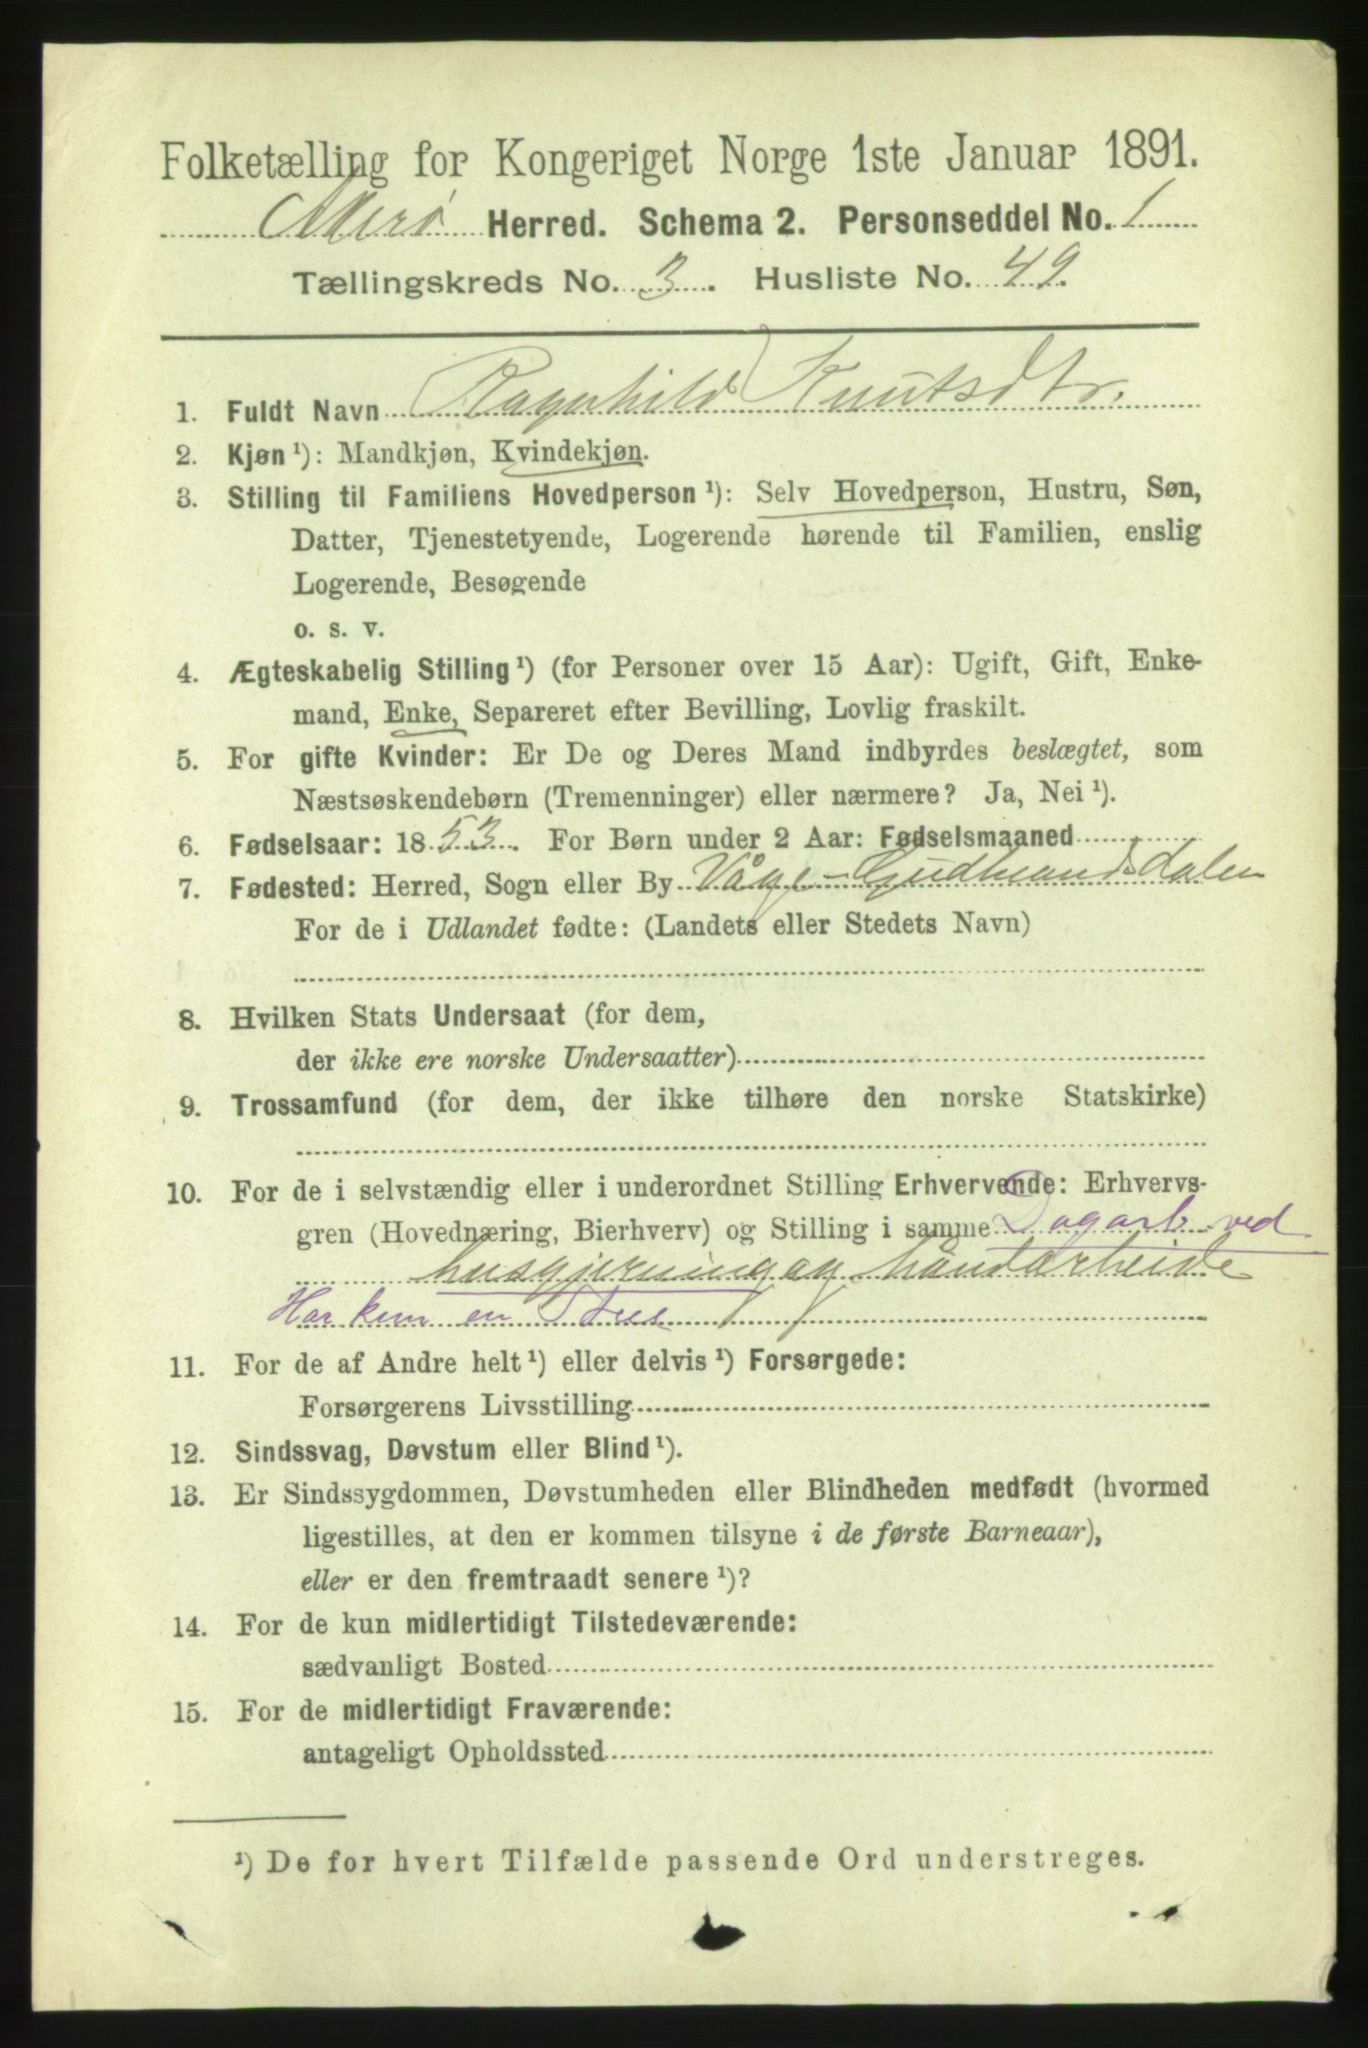 Folketælling for Kongeriget Norge 1ste Januar 1891.
Akerø Herred. Schema 2. Personseddel No. 1
Tællingskreds No. 3. Husliste No. 49.
1. Fuldt Navn Ragnhild Knutsdtr.
2. Kjøn ¹): Mandkjøn, Kvindekjøn.
3. Stilling til Familiens Hovedperson ¹): Selv Hovedperson, Hustru, Søn,
Datter, Tjenestetyende, Logerende hørende til Familien, enslig
Logerende, Besøgende
o. s. v.
4. Ægteskabelig Stilling ¹) (for Personer over 15 Aar): Ugift, Gift, Enke-
mand, Enke, Separeret efter Bevilling, Lovlig fraskilt.
5. For gifte Kvinder: Er De og Deres Mand indbyrdes beslægtet, som
Næstsøskendebørn (Tremenninger) eller nærmere? Ja, Nei ¹).
6. Fødselsaar: 1853. For Børn under 2 Aar: Fødselsmaaned
7. Fødested: Herred, Sogn eller By Våge-Gudbrandsdalen
For de i Udlandet fødte: (Landets eller Stedets Navn)
8. Hvilken Stats Undersaat (for dem,
der ikke ere norske Undersaatter)
9. Trossamfund (for dem, der ikke tilhøre den norske Statskirke)
10. For de i selvstændig eller i underordnet Stilling Erhvervende: Erhvervs-
gren (Hovednæring, Bierhverv) og Stilling i samme Dagarb. ved
husgjerning og håndarbeide
Har kun en Stue
11. For de af Andre helt ¹) eller delvis ¹) Forsørgede:
Forsørgerens Livsstilling
12. Sindssvag, Døvstum eller Blind ¹).
13. Er Sindssygdommen, Døvstumheden eller Blindheden medfødt (hvormed
ligestilles, at den er kommen tilsyne i de første Barneaar),
eller er den fremtraadt senere ¹)?
14. For de kun midlertidigt Tilstedeværende:
sædvanligt Bosted
15. For de midlertidigt Fraværende:
antageligt Opholdssted
¹) De for hvert Tilfælde passende Ord understreges.